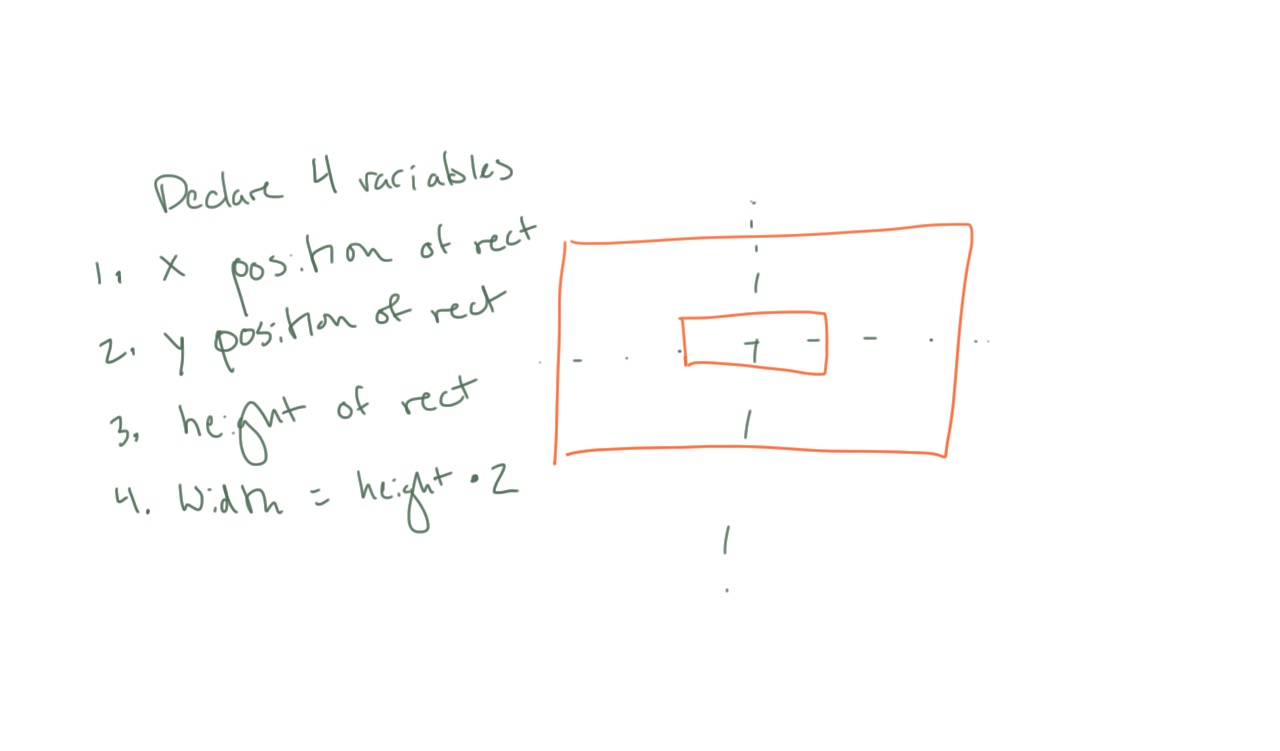 Declare 4 variables
1. X position of rect
2. y position of rect
3. height of rect
4. Width = height • 2